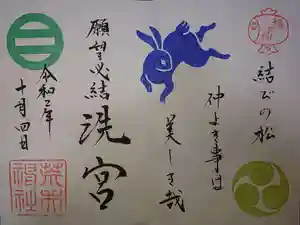 結びの松
仲よき事は
美しき哉
洗宮
願望必結
令和二年
十月四日